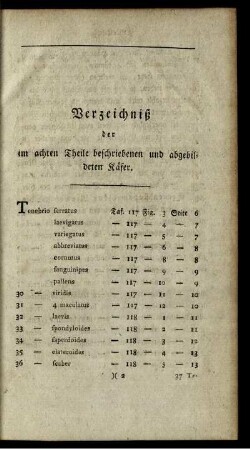 Verzeichniß
der
im achten Theile beschriebenen und abgebil-
deten Käfer.
Tenebrio serratus Taf. 117 Fig. 3 Seite 6
laevigatus — 117 — 4 — 7
variegatus — 117 — 5 — 7
abbreviatus — 117 — 6 — 8
cornutus — 117 — 8 — 8
sanguinipes — 117 — 9 — 9
pallens — 117 — 10 — 9
30 — viridis — 117 — 11 — 10
31 — 4 maculatus — 117 — 12 — 10
32 — laevis — 118 — 1 — 11
33 — spondyloides — 118 — 2 — 11
34 — saperdoides — 118 — 3 — 12
35 — elateroides — 118 — 4 — 13
36 — scaber — 118 — 5 — 13
)( 2 37 Te-